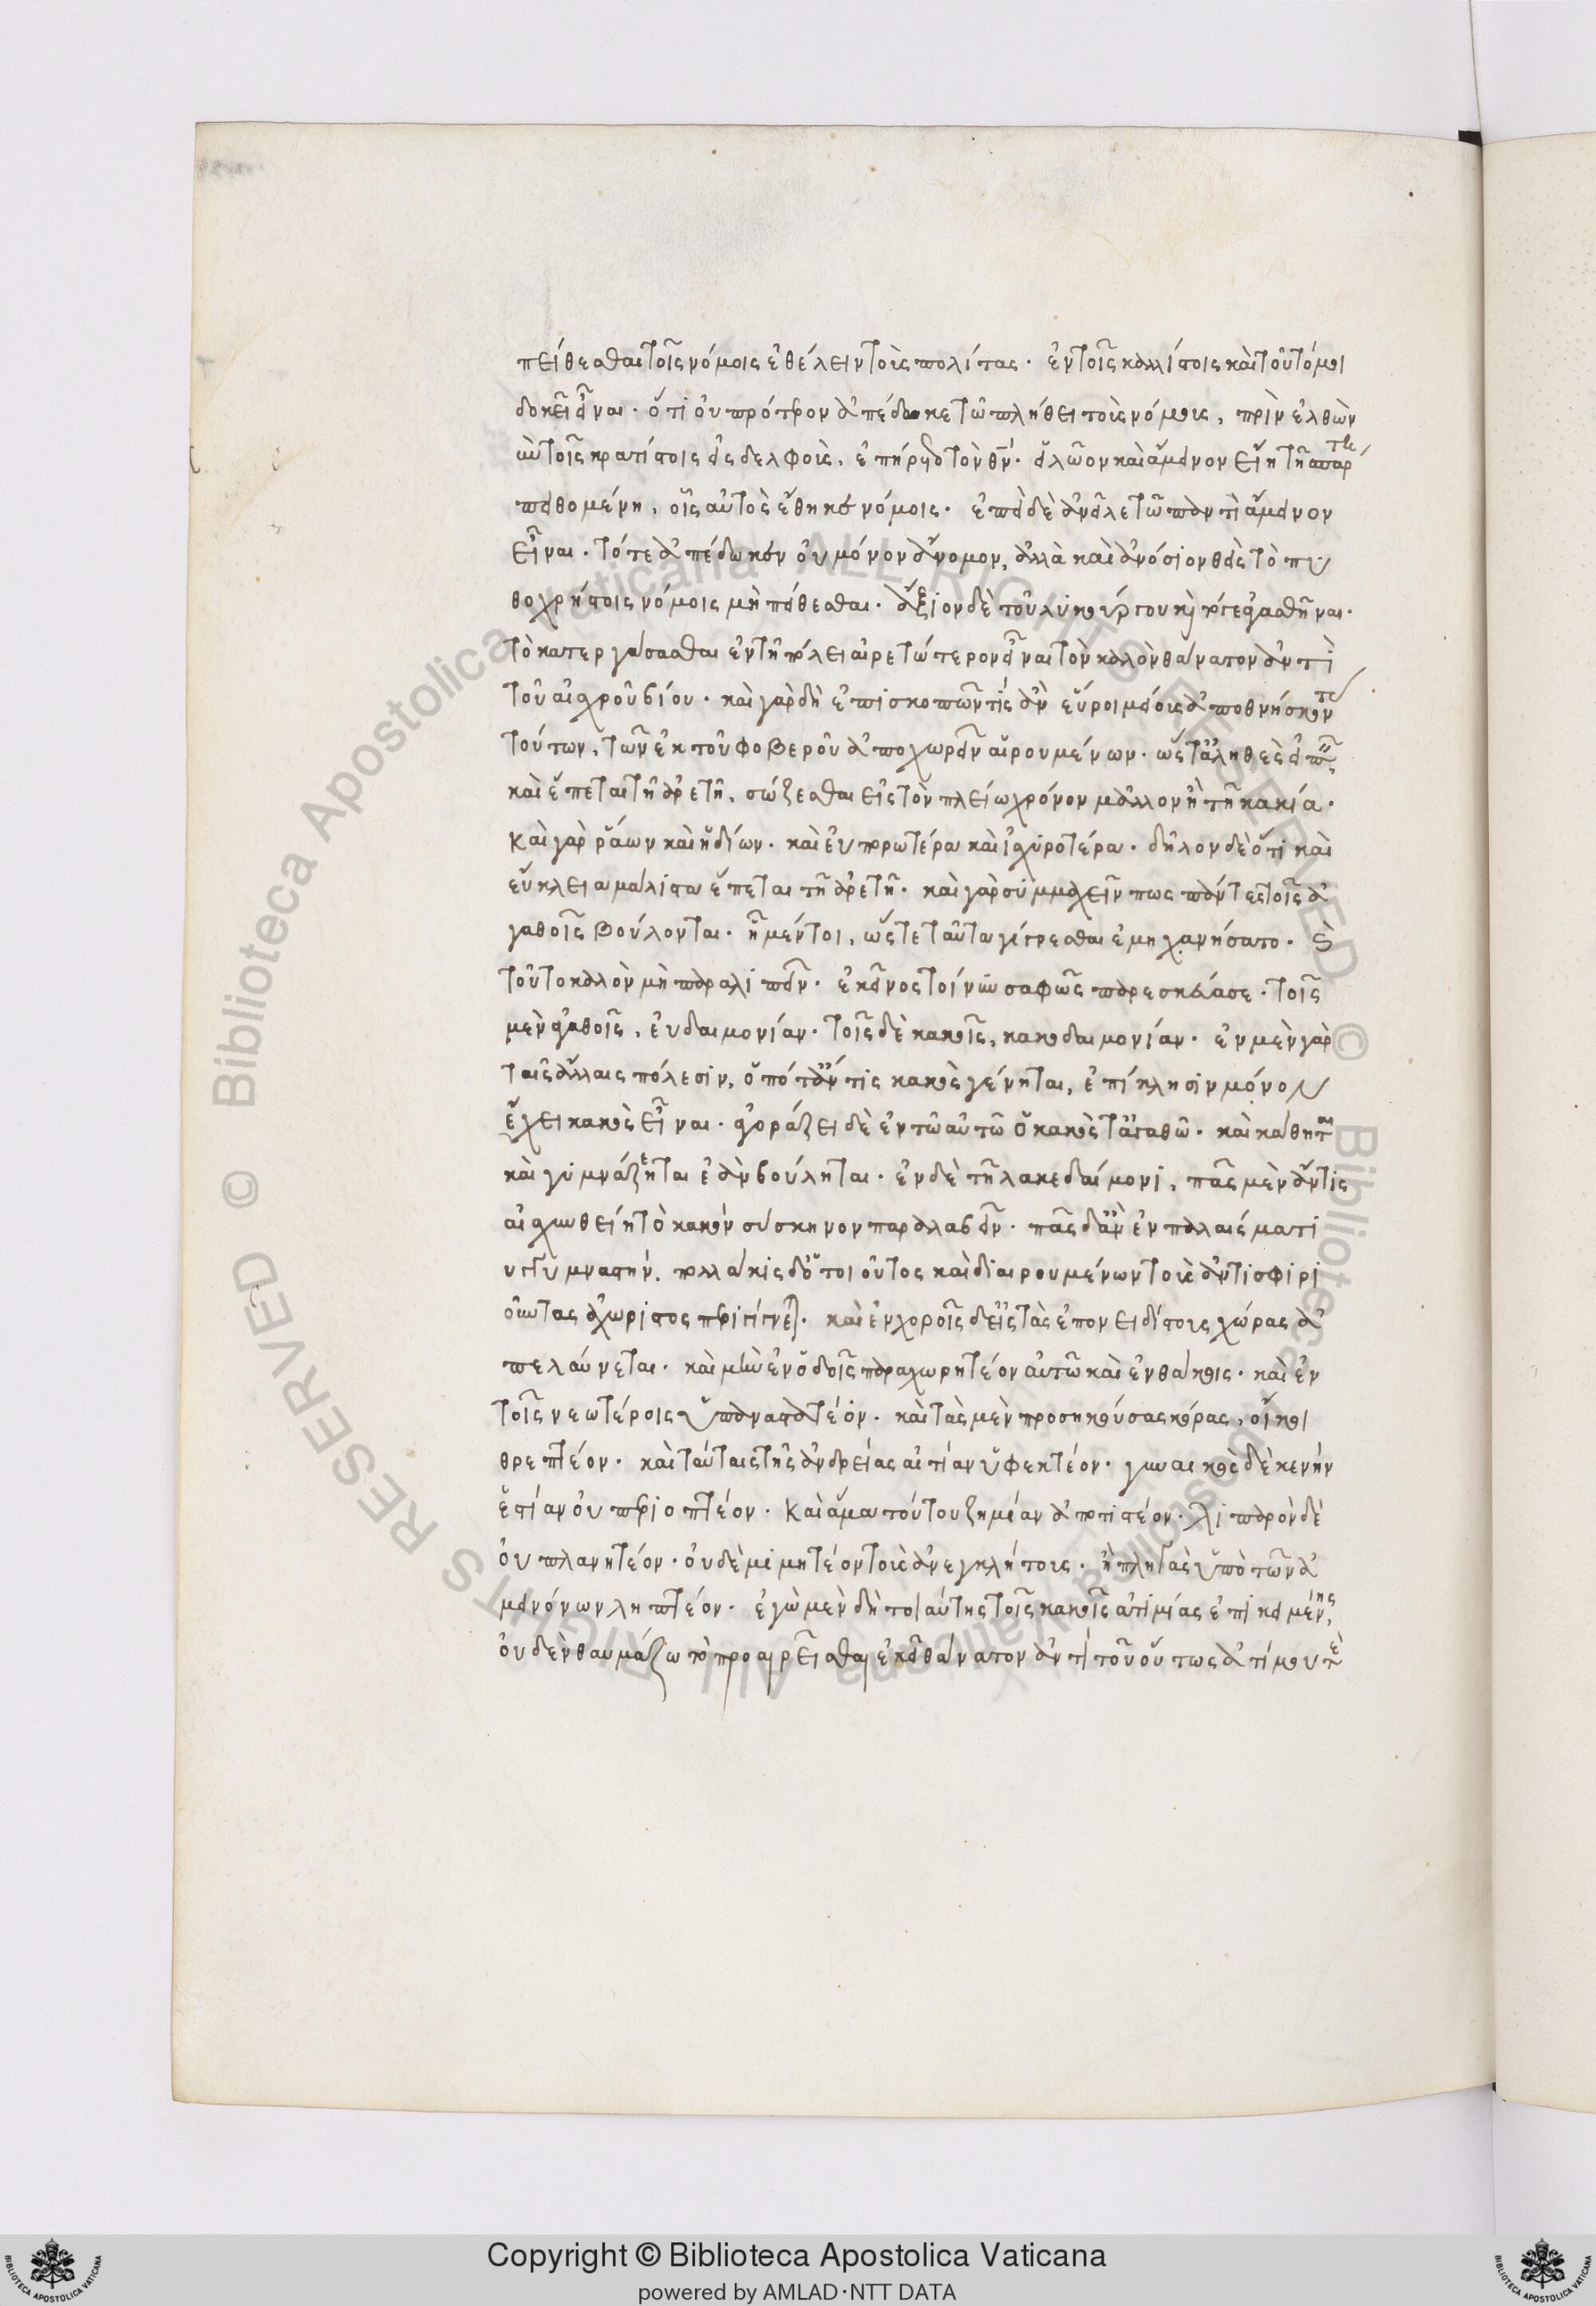 πείθεσθαι τοῖς νόμοις ἐθέλειν τοὺς πολίτας· ἐν τοῖς καλλίστοις καὶ τοῦτό μοι
δοκεῖ εἶναι· ὅτι οὐ πρότερον ἀπέδωκε τῶ πλήθει τοὺς νόμους, πρὶν ἐλθὼν
σὺν τοῖς κρατίστοις εἰς δελφοὺς, ἐπήρετο τὸν θν· εἰ λῶον καὶ ἄμεινον εἴη τῆ σπάρτη
πειθομένη, οἷς αὐτὸς ἔθηκε νόμοις· ἐπεὶ δὲ ἀνεῖλε τῶ παντὶ ἄμεινον
εἶναι· τότε ἀπέδωκεν οὐ μόνον ἄνομον, ἀλλὰ καὶ ἀνόσιον θεὶς τὸ πυ
θοχρήστοις νόμοις μὴ πείθεσθαι· ἄξιον δὲ τοῦ λυκούργου καὶ τόδε ἀγασθῆναι·
τὸ κατεργάσασθαι ἐν τῆ πόλει αἱρετώτερον εἶναι τὸν καλὸν θάνατον ἀντὶ
τοῦ αἰσχροῦ βίου· καὶ γὰρ δὴ ἐπισκοπῶν τίς ἂν εὕροι μείους ἀποθνήσκοντας
τούτων, τῶν ἐκ τοῦ φοβεροῦ ἀποχωρεῖν αἱρουμένων· ὡς τἀληθὲς εἰπεῖν
καὶ ἕπεται τῆ ἀρετῆ, σώζεσθαι εἰς τὸν πλείω χρόνον μᾶλλον ἢ τῆ κακία·
καὶ γὰρ ῥάων καὶ ἡδίων· καὶ εὐπορωτέρα καὶ ἰσχυροτέρα· δῆλον δὲ ὅτι καὶ
εὔκλεια μάλιστα ἕπεται τῆ ἀρετῆ· καὶ γὰρ συμμαχεῖν πως πάντες τοῖς ἀ
γαθοῖς βούλονται· ἧ μέντοι, ὥστε ταῦτα γίγνεσθαι ἐμηχανήσατο· καὶ
τοῦτο καλὸν μὴ παραλιπεῖν· ἐκεῖνος τοίνυν σαφῶς παρεσκεύασε· τοῖς
μὲν ἀγαθοῖς, εὐδαιμονίαν· τοῖς δὲ κακοῖς, κακοδαιμονίαν· ἐν μὲν γὰρ
ταῖς ἄλλαις πόλεσιν, ὁπόταν τις κακὸς γένηται, ἐπίκλησιν μόνον
ἔχει κακὸς εἶναι· ἀγοράζει δὲ ἐν τῶ αὐτῶ ὁ κακὸς τἀγαθῶ· καὶ κάθηται
καὶ γυμνάζεται ἐὰν βούληται· ἐν δὲ τῆ λακεδαίμονι, πᾶς μὲν ἄν τις
αἰσχυνθείη τὸ κακὸν σύσκηνον παραλαβεῖν· πᾶς δ' ἂν ἐν παλαίσματι
συγγυμναστήν. πολλάκις δ' ὁ τοιοῦτος καὶ διαιρουμένων τοὺς ἀντισφαιρι
οῦντας ἀχώριστος περιγίγνεται· καὶ ἐν χοροῖς δ' εἰς τὰς ἐπονειδίστους χώρας ἀ
πελαύνεται· καὶ μὴν ἐν ὁδοῖς παραχωρητέον αὐτῶ καὶ ἐν θάκοις· καὶ ἐν
τοῖς νεωτέροις ὑπαναστατέον· καὶ τὰς μὲν προσηκούσας κόρας, οἴκοι
θρεπτέον· καὶ ταύταις τῆς ἀνδρείας αἰτίαν ὑφεκτέον· γυναικὸς δὲ κενὴν
ἑστίαν οὐ περιοπτέον· καὶ ἅμα τούτου ζημίαν ἀποτιστέον· λιπαρὸν δὲ
οὐ πλανητέον· οὐδὲ μιμητέον τοὺς ἀνεγκλήτους· ἢ πληγὰς ὑπὸ τῶν ἀ
μεινόνων ληπτέον· ἐγὼ μὲν δὴ τοιαύτης τοῖς κακοῖς ἀτιμίας ἐπικειμένης,
οὐδὲν θαυμάζω τὸ προαιρεῖσθαι ἐκεῖ θάνατον ἀντὶ τοῦ οὕτως ἀτίμου τε